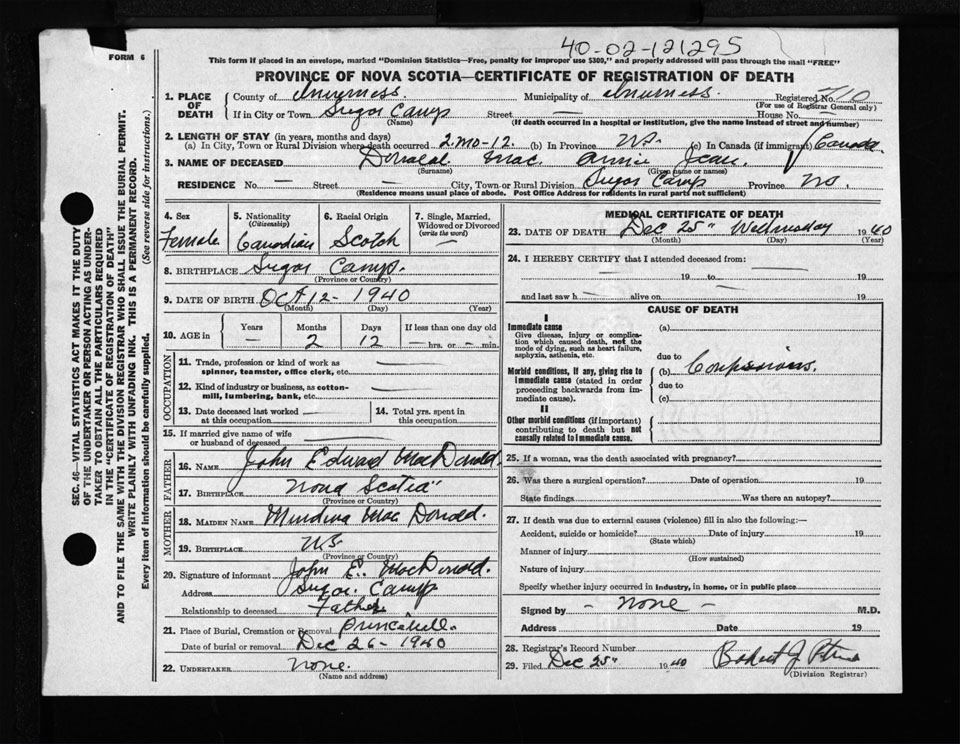 40-02-121295
FORM 6
This form if placed in an envelope, marked "Dominion Statistics—Free, penalty for improper use $300," and properly addressed will pass through the mail "FREE"
PROVINCE OF NOVA SCOTIA—CERTIFICATE OF REGISTRATION OF DEATH
1. PLACE OF DEATH
County of Inverness. Municipality of Inverness. Registered No. 710
(For use of Registrar General only)
If in City or Town Sugar Camp Street House No.
(Name) (If death occurred in a hospital or institution, give the name instead of street and number)
2. LENGTH OF STAY (in years, months and days)
(a) In City, Town or Rural Division where death occurred 2.mo-12. (b) In Province NS. (c) In Canada (if immigrant) Canada.
3. NAME OF DECEASED Donald Mac Annie Jean.
(Surname) (Given name or names)
RESIDENCE No. — Street — City, Town or Rural Division Sugar Camp Province NS.
(Residence means usual place of abode. Post Office Address for residents in rural parts not sufficient)
SEC. 46—VITAL STATISTICS ACT MAKES IT THE DUTY
OF THE UNDERTAKER OR PERSON ACTING AS UNDER-
TAKER TO OBTAIN ALL THE PARTICULARS REQUIRED
IN THE "CERTIFICATE OF REGISTRATION OF DEATH"
AND TO FILE THE SAME WITH THE DIVISION REGISTRAR WHO SHALL ISSUE THE BURIAL PERMIT.
WRITE PLAINLY WITH UNFADING INK. THIS IS A PERMANENT RECORD.
Every item of information should be carefully supplied. (See reverse side for instructions.)
4. Sex Female
5. Nationality (Citizenship) Canadian
6. Racial Origin Scotch
7. Single, Married, Widowed or Divorced (write the word) —
8. BIRTHPLACE Sugar Camp.
(Province or Country)
9. DATE OF BIRTH Oct 12- 1940
(Month) (Day) (Year)
10. AGE in Years — Months 2 Days 12 If less than one day old — hrs. or — min.
OCCUPATION
11. Trade, profession or kind of work as
spinner, teamster, office clerk, etc.
12. Kind of industry or business, as cotton-
mill, lumbering, bank, etc.
13. Date deceased last worked at this occupation
14. Total yrs. spent in this occupation
15. If married give name of wife
or husband of deceased
FATHER
16. NAME John Edward MacDonald.
17. BIRTHPLACE Nova Scotia
(Province or Country)
MOTHER
18. MAIDEN NAME Mac Donald.
19. BIRTHPLACE NS.
(Province or Country)
20. Signature of informant John E. MacDonald.
Address Sugar Camp
Relationship to deceased Father
21. Place of Burial, Cremation or Removal Princeville.
Date of burial or removal Dec 26 - 1940
22. UNDERTAKER None.
(Name and address)
MEDICAL CERTIFICATE OF DEATH
23. DATE OF DEATH Dec 25" Wednesday 1940
(Month) (Day) (Year)
24. I HEREBY CERTIFY that I attended deceased from:
19 to 19
and last saw h alive on 19
CAUSE OF DEATH
I
Immediate cause
Give disease, injury or complica-
tion which caused death, not the
mode of dying, such as heart failure,
asphyxia, asthenia, etc.
(a)
due to
Morbid conditions, if any, giving rise to
immediate cause (stated in order
proceeding backwards from im-
mediate cause).
(b)
due to
(c)
II
Other morbid conditions (if important)
contributing to death but not
causally related to immediate cause.
25. If a woman, was the death associated with pregnancy?
26. Was there a surgical operation? Date of operation 19
State findings Was there an autopsy?
27. If death was due to external causes (violence) fill in also the following:—
Accident, suicide or homicide? Date of injury 19
(State which)
Manner of injury
(How sustained)
Nature of injury
Specify whether injury occurred in industry, in home, or in public place
Signed by - None - M.D.
Address Date 19
28. Registrar's Record Number
29. Filed Dec 25" 1940 Robert J.
(Division Registrar)